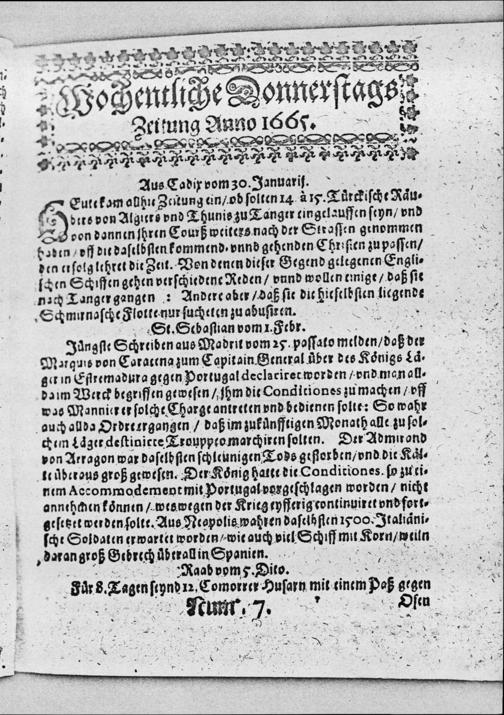 Wochentliche Donnerstags
Zeitung Anno 1665.
Aus Cadix vom 30. Januarij.
Heute kam allhie Zeitung ein/ ob solten 14. à 15. Türckische Räu-
bers von Algiers vnd Thunis zu Tanger eingelauffen seyn/ vnd
von dannen jhren Courß weiters nach der Strassen genommen
haben/ vff die daselbsten kommend- vnnd gehenden Christen zu passen/
den erfolg lehret die Zeit. Von denen dieser Gegend gelegenen Engli-
schen Schiffen gehen verschiedene Reden/ vnnd wollen einige/ daß sie
nach Tanger gangen : Andere aber/ daß sie die hieselbsten liegende
Schmirnasche Flotte nur sucheten zu abusiren.
St. Sebastian vom 1. Febr.
Jüngste Schreiben aus Madrit vom 25. passato melden/ daß der
Marquis von Caracena zum Capitain General über des Königs Lä-
ger in Estremadura gegen Portugal declariret worden/ vnd man all-
da im Werck begriffen gewesen/ jhm die Conditiones zu machen/ vff
was Mannier er solche Charge antreten vnd bedienen solte: So wahr
auch allda Ordre ergangen/ daß im zukünfftigen Monath alle zu sol-
chem Läger destinirte Trouppen marchiren solten. Der Admirand
von Arragon war daselbsten schleunigen Tods gestorben/ vnd die Käl-
te überaus groß gewesen. Der König hatte die Conditiones. so zu ei-
nem Accommodement mit Portugal vorgeschlagen worden/ nicht
annehmen können/ weswegen der Krieg eyfferig continuiret vnd fort-
gesetzet werden solte. Aus Neapolis wahren daselbsten 1500. Italiäni-
sche Soldaten erwartet worden/ wie auch viel Schiff mit Korn/ weiln
daran groß Gebrech überall in Spanien.
Raab vom 5. Dito.
Für 8. Tagen seynd 12. Comorrer Husarn mit einem Paß gegen
Num. 7.
Ofen